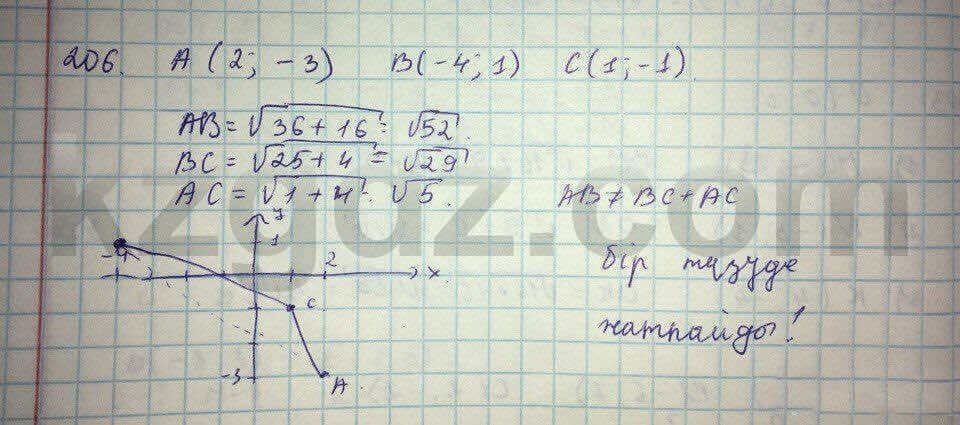 206. A (2; -3) B(-4; 1) C(1; -1)
AB = √36 + 16 = √52.
BC = √25 + 4 = √29
AC = √1 + 4 = √5. AB ≠ BC + AC
kzgdz.com
y
1
-4 2 x
C
-3 A
бір түзуде
жатпайды!